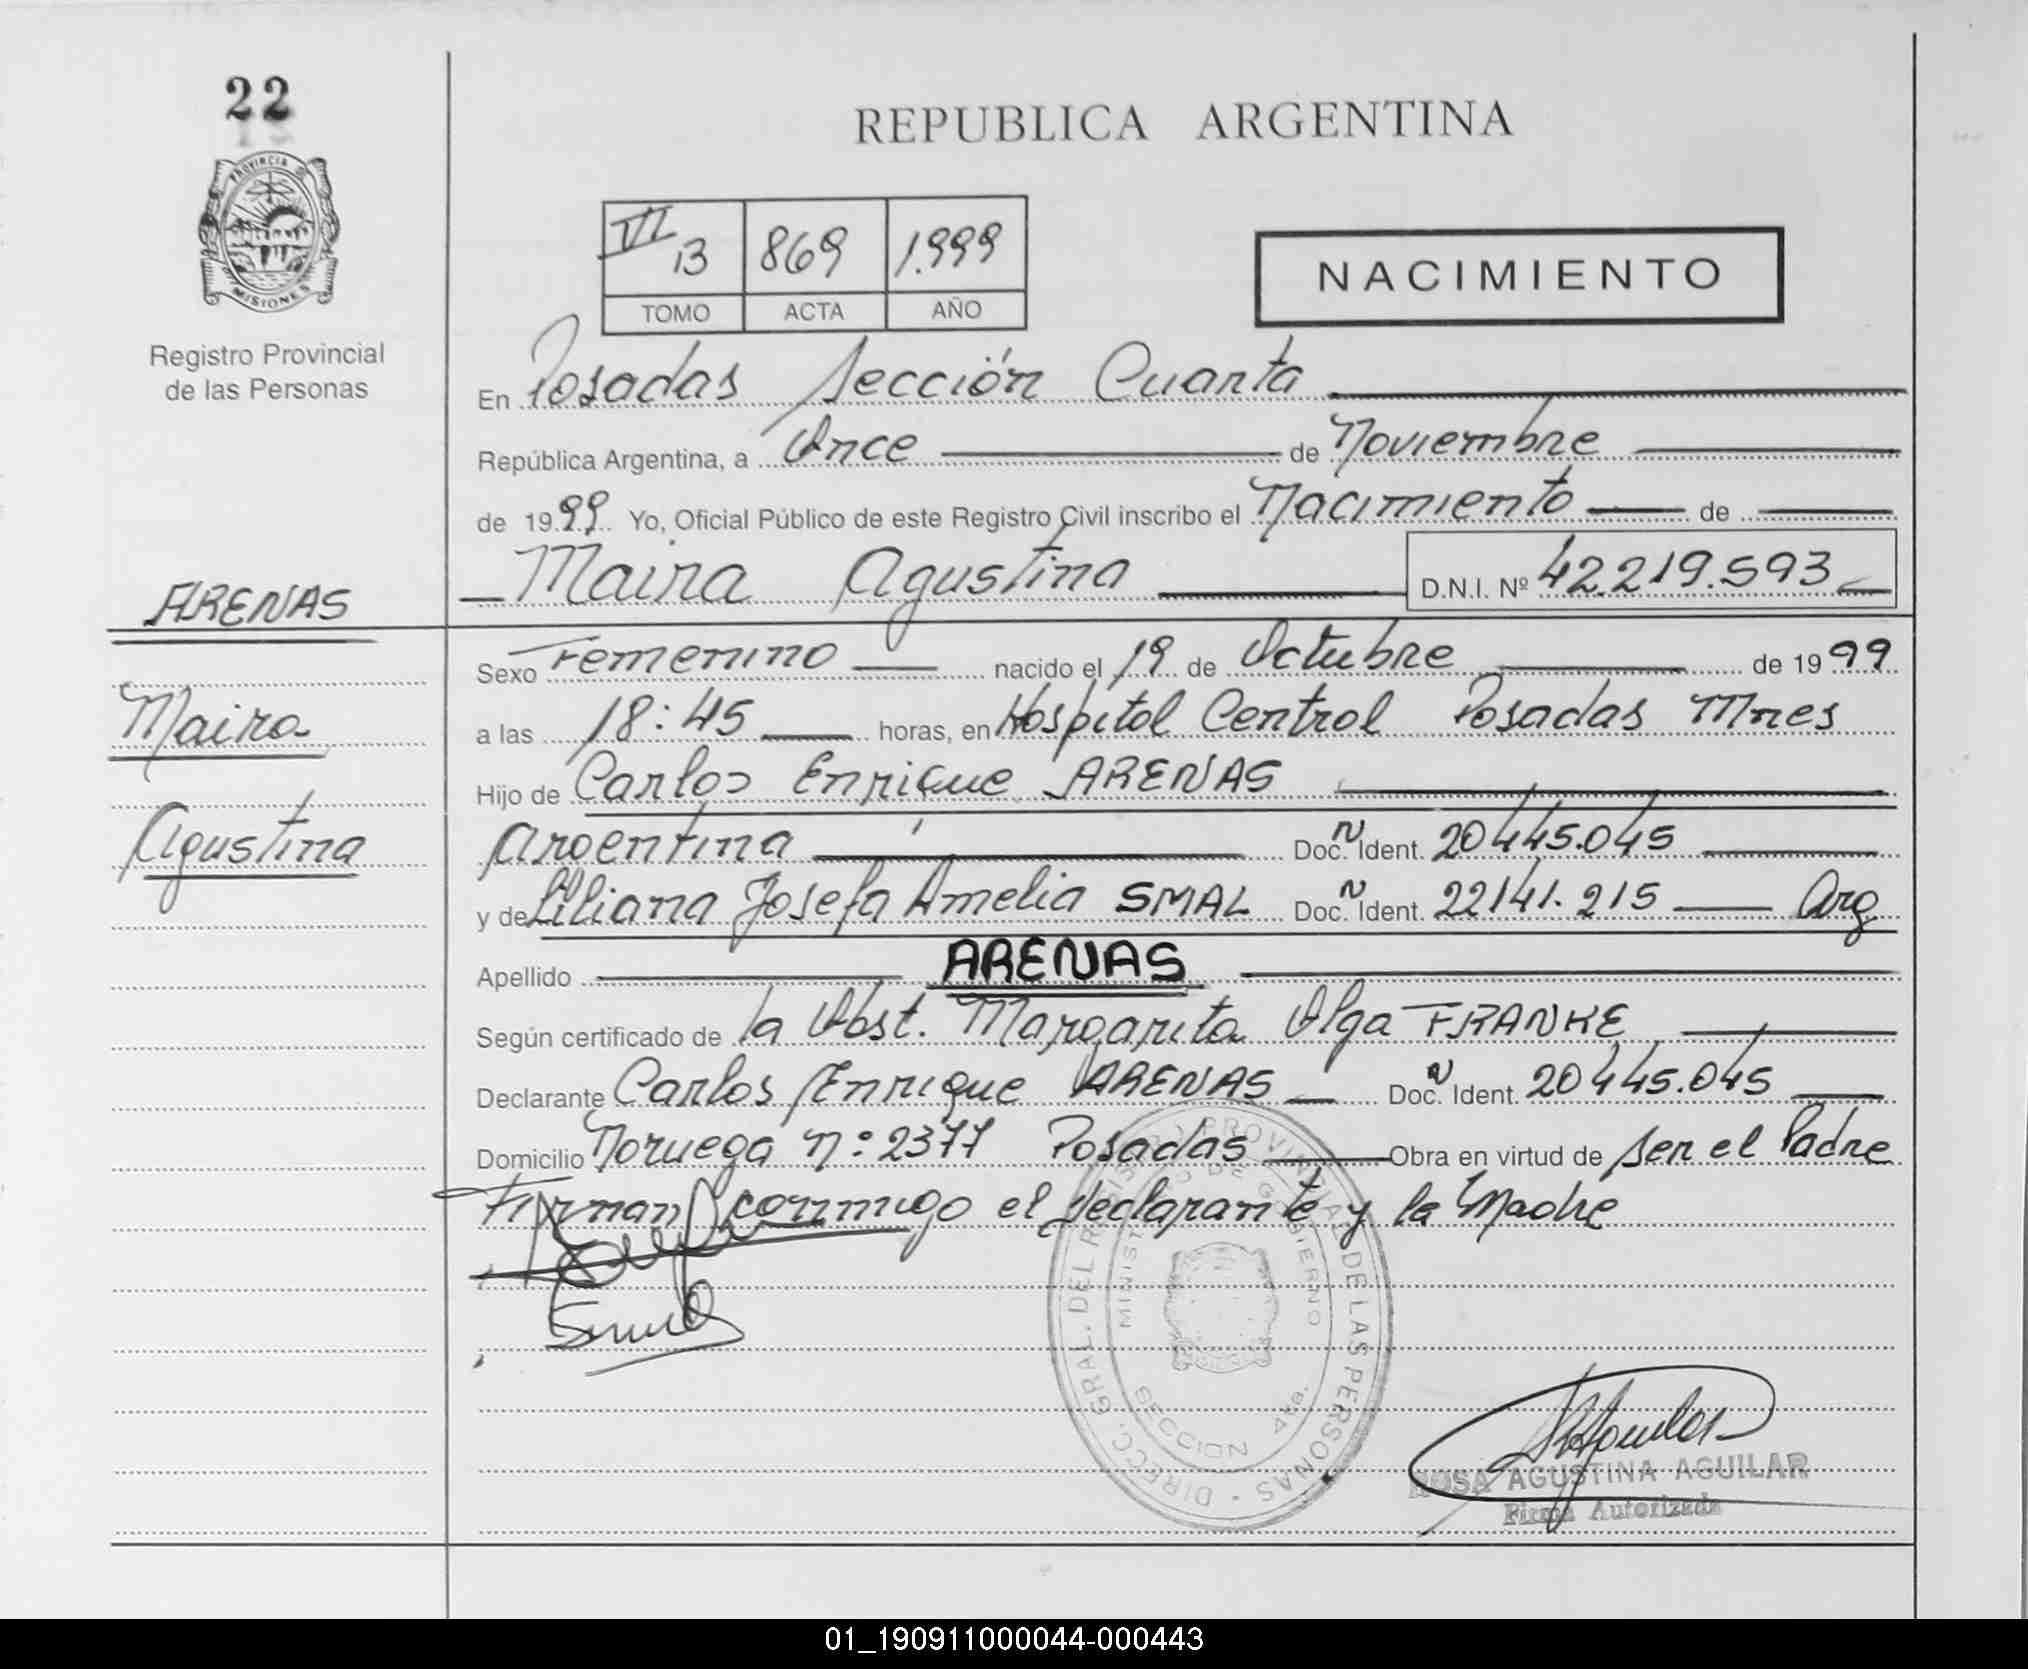 22
PROVINCIA D
MISIONES
Registro Provincial
de las Personas
REPUBLICA ARGENTINA
VI 13 869 1.999
TOMO ACTA AÑO
NACIMIENTO
En Posadas Sección Cuarta
República Argentina, a Once de Noviembre
de 1999 Yo, Oficial Público de este Registro Civil inscribo el Nacimiento de
Maira Agustina D.N.I. Nº 42.219.593
ARENAS
Maira
Agustina
Sexo Femenino nacido el 19 de Octubre de 1999
a las 18:45 horas, en Hospital Central Posadas Mnes
Hijo de Carlos Enrique ARENAS
Argentina Doc. Ident. 20445.045
y de Liliana Josefa Amelia SMAL Doc. Ident. 22141.215 Arg
Apellido ARENAS
Según certificado de la Obst. Margarita Olga FRANKE
Declarante Carlos Enrique ARENAS Doc. Ident. 20445.045
Domicilio Noruega nº 2377 Posadas Obra en virtud de ser el Padre
Firman conmigo el declarante y la Madre
DIRECC. GRAL. DEL REGISTRO PROVINCIAL DE LAS PERSONAS
MINISTERIO DE GOBIERNO
SECCION 4ta.
ROSA AGUSTINA AGUILAR
Firma Autorizada
01_190911000044-000443